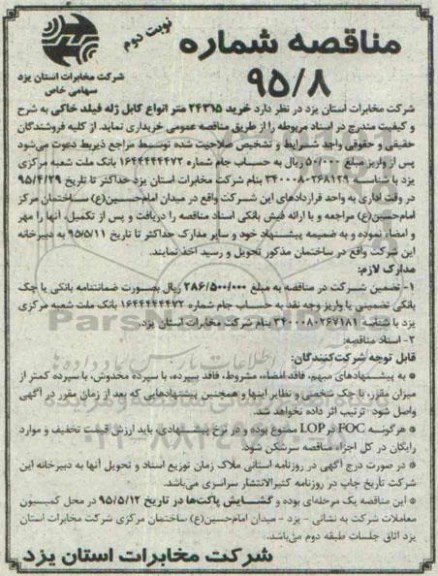 نوبت دوم
مناقصه شماره
۹۵/۸
شرکت مخابرات استان یزد
سهامی خاص
شرکت مخابرات استان یزد در نظر دارد خرید ۲۴۳۱۵ متر انواع کابل ژله فیلد خاکی به شرح
و کیفیت مندرج در اسناد مربوطه را از طریق مناقصه عمومی خریداری نماید. از کلیه فروشندگان
حقیقی و حقوقی واجد شرایط و تشخیص صلاحیت شده توسط مراجع ذیربط دعوت می‌شود
پس از واریز مبلغ ۵۰/۰۰۰ ریال به حساب جام شماره ۱۶۴۴۴۴۴۴۷۲ بانک ملت شعبه مرکزی
یزد با شناسه ۳۴۰۰۰۸۰۲۶۸۱۲۹ بنام شرکت مخابرات استان یزد حداکثر تا تاریخ ۹۵/۴/۲۹
در وقت اداری به واحد قراردادهای این شرکت واقع در میدان امام‌حسین(ع) ساختمان مرکز
امام‌حسین(ع) مراجعه و با ارائه فیش بانکی اسناد مناقصه را دریافت و پس از تکمیل، آنها را مهر
و امضاء نموده و به ضمیمه پیشنهاد خود و سایر مدارک حداکثر تا تاریخ ۹۵/۵/۱۱ به دبیرخانه
این شرکت واقع در ساختمان مذکور تحویل و رسید اخذ نمایند.
مدارک لازم:
۱- تضمین شرکت در مناقصه به مبلغ ۲۸۶/۵۰۰/۰۰۰ ریال بصورت ضمانتنامه بانکی یا چک
بانکی تضمینی یا واریز وجه نقد به حساب جام شماره ۱۶۴۴۴۴۴۴۷۲ بانک ملت شعبه مرکزی
یزد با شناسه ۳۴۰۰۰۸۰۲۶۷۱۸۱ بنام شرکت مخابرات استان یزد.
۲- اسناد مناقصه:
قابل توجه شرکت‌کنندگان:
* به پیشنهادهای مبهم، فاقد امضاء، مشروط، فاقد سپرده، با سپرده مخدوش، با سپرده کمتر از
میزان مقرر، با چک شخصی و نظایر اینها و همچنین پیشنهادهایی که بعد از زمان مقرر در آگهی
واصل شود ترتیب اثر داده نخواهد شد.
* هرگونه FOC در LOP ممنوع بوده و در نرخ پیشنهادی، باید ارزش قیمت تخفیف و موارد
رایگان در کل اجزاء مناقصه سرشکن شود.
* در صورت درج آگهی در روزنامه استانی ملاک زمان توزیع اسناد و تحویل آنها به دبیرخانه این
شرکت تاریخ چاپ در روزنامه کثیرالانتشار سراسری می‌باشد.
* این مناقصه یک مرحله‌ای بوده و گشایش پاکت‌ها در تاریخ ۹۵/۵/۱۲ در محل کمیسیون
معاملات شرکت به نشانی - یزد - میدان امام‌حسین(ع) ساختمان مرکزی شرکت مخابرات استان
یزد اتاق جلسات طبقه دوم می‌باشد.
شرکت مخابرات استان یزد